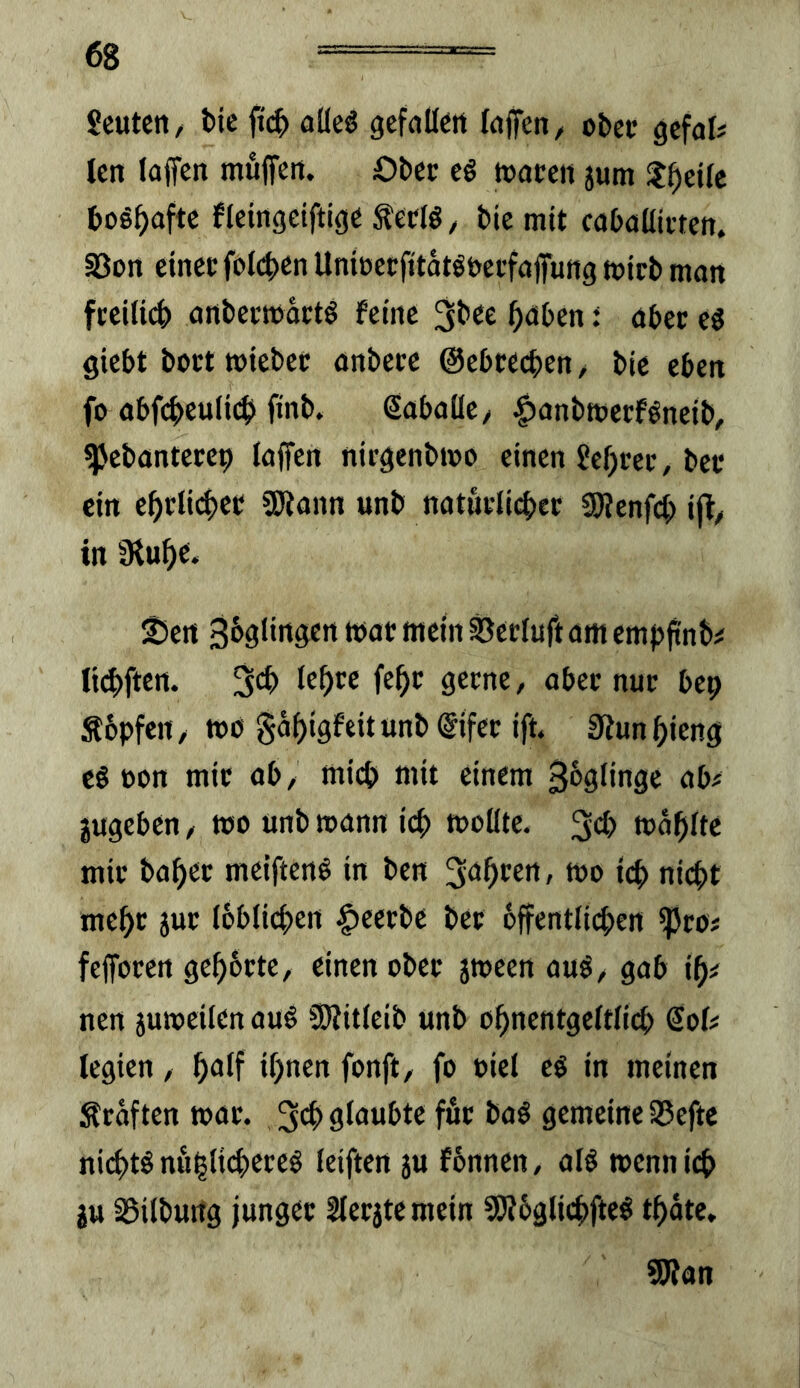 68
Leuten, die sich alles gefallen lassen, oder gefal-
len lassen müssen. Oder es waren zum Theile
boshafte kleingeistige Kerls, die mit caballirten.
Von einer solchen Universitätsverfassung wird man
freilich anderwärts keine Idee haben: aber es
giebt dort wieder andere Gebrechen, die eben
so abscheulich sind. Caballe, Handwerksneid,
Pedanterey lassen nirgendwo einen Lehrer, der
ein ehrlicher Mann und natürlicher Mensch ist,
in Ruhe.
Den Zöglingen war mein Verlust am empfind-
lichsten. Ich lehre sehr gerne, aber nur bey
Köpfen, wo Fähigkeit und Eifer ist. Nun hieng
es von mir ab, mich mit einem Zöglinge ab-
zugeben, wo und wann ich wollte. Ich wählte
mir daher meistens in den Jahren, wo ich nicht
mehr zur löblichen Heerde der öffentlichen Pro-
fessoren gehörte, einen oder zween aus, gab ih-
nen zuweilen aus Mitleid und ohnentgeltlich Col-
legien, half ihnen sonst, so viel es in meinen
Kräften war. Ich glaubte für das gemeine Beste
nichts nützlicheres leisten zu können, als wenn ich
zu Bildung junger Aerzte mein Möglichstes thäte.
Man